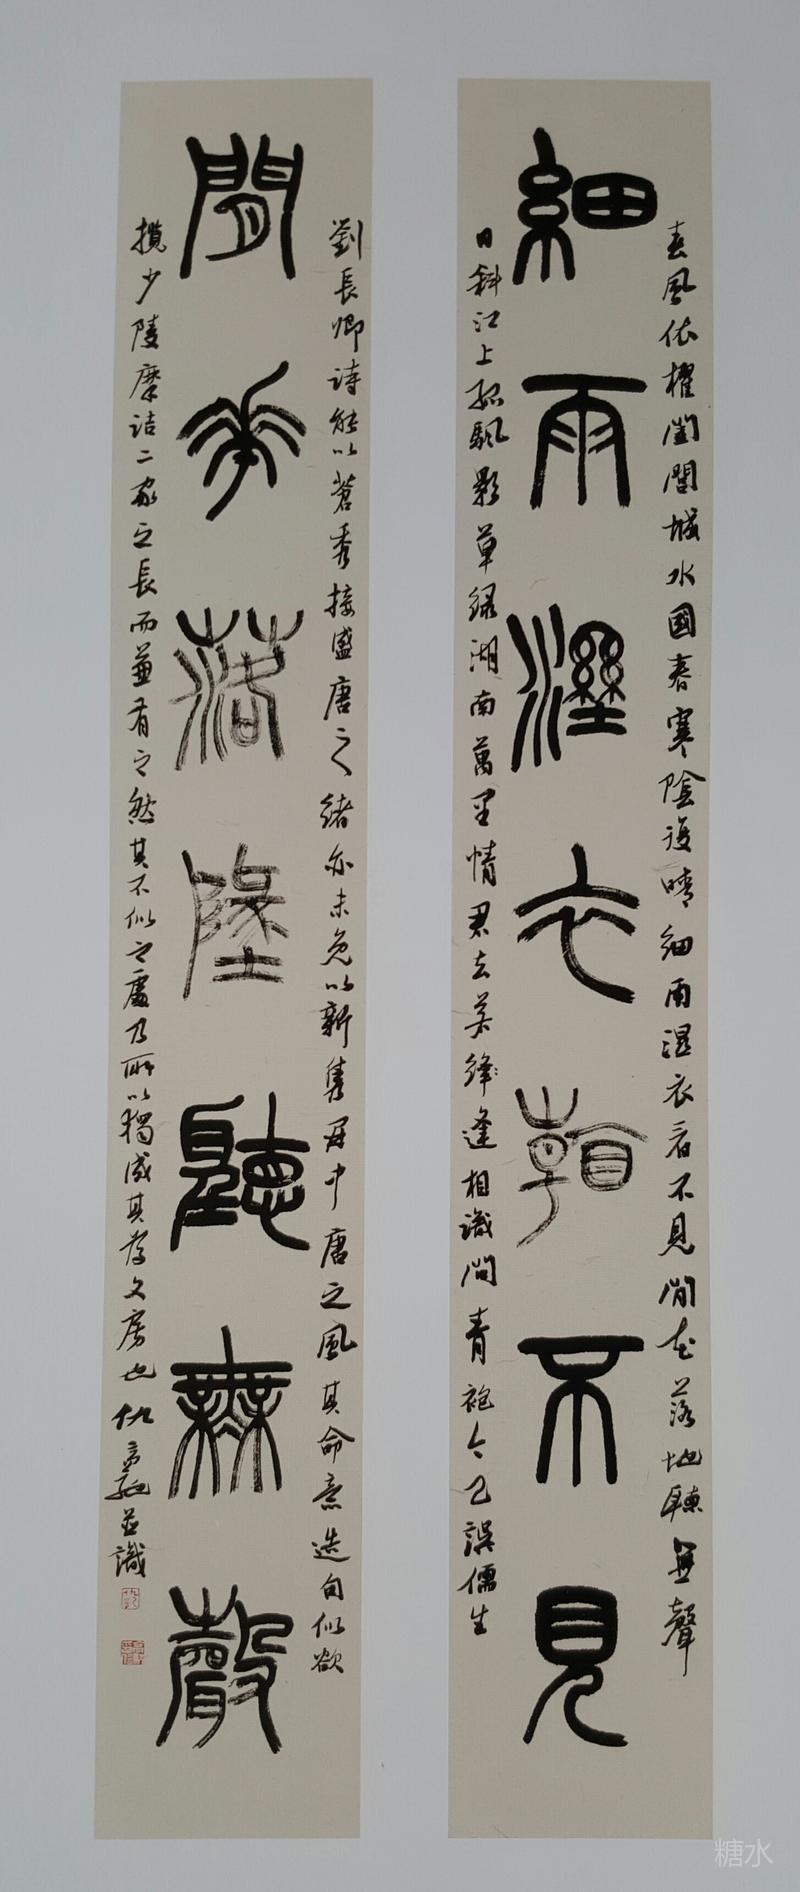 春風依櫂闔閭城水國春寒陰復晴細雨濕衣看不見閒花落地聽無聲
細雨溼衣看不見
日斜江上孤颿影草綠湖南萬里情君去若逢相識問青袍今已誤儒生
劉長卿詩能以蒼秀接盛唐之緒亦未免以新雋開中唐之風其命意造句似欲
閒華落墬聽無聲
攬少陵摩詰二家之長而兼有之然其不似之處乃所以獨成其為文房也仇高馳並識
糖水